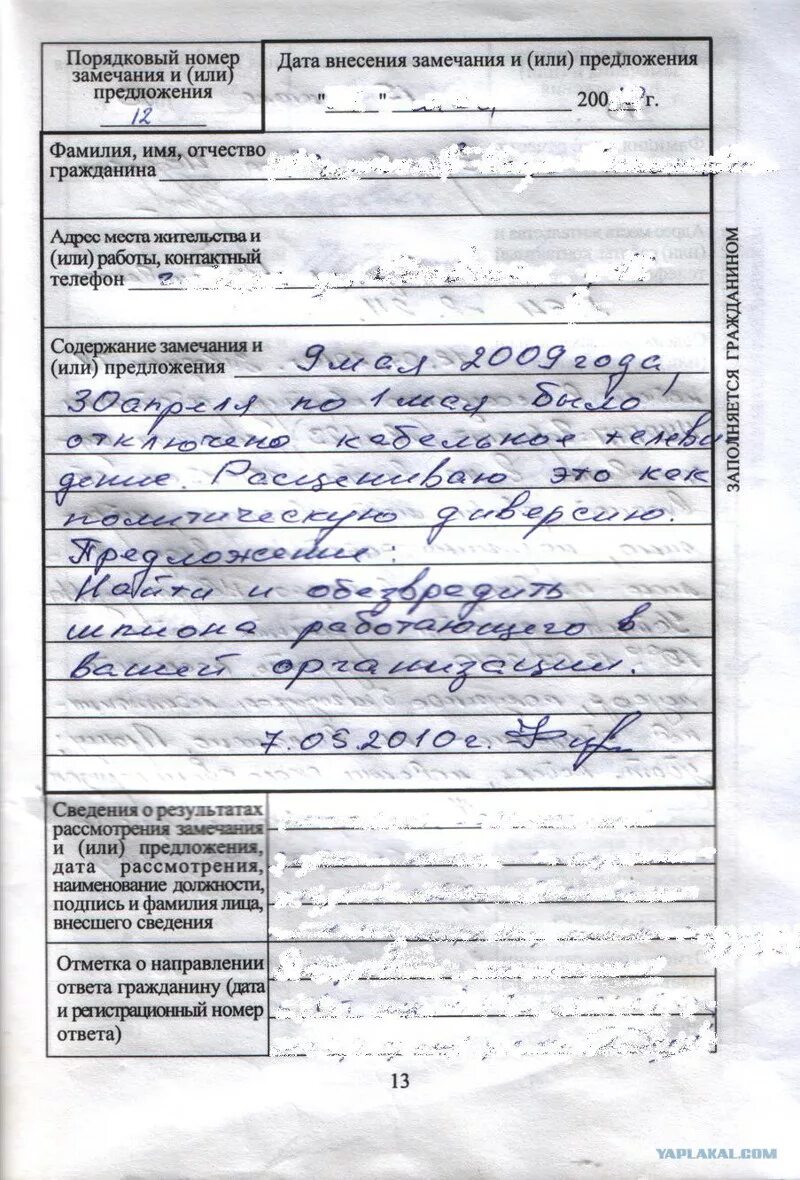 Порядковый номер
замечания и (или)
предложения
12
Дата внесения замечания и (или) предложения
"____" ________ 200 г.
Фамилия, имя, отчество
гражданина
Адрес места жительства и
(или) работы, контактный
телефон
ЗАПОЛНЯЕТСЯ ГРАЖДАНИНОМ
Содержание замечания и
(или) предложения 9 мая 2009 года,
30 апреля по 1 мая было
отключено кабельное телеви
дение. Расцениваю это как
политическую диверсию.
Предложение:
Найти и обезвредить
шпиона работающего в
вашей организации.
7.05.2010г.
Сведения о результатах
рассмотрения замечания
и (или) предложения,
дата рассмотрения,
наименование должности,
подпись и фамилия лица,
внесшего сведения
Отметка о направлении
ответа гражданину (дата
и регистрационный номер
ответа)
13
YAPLAKAL.COM